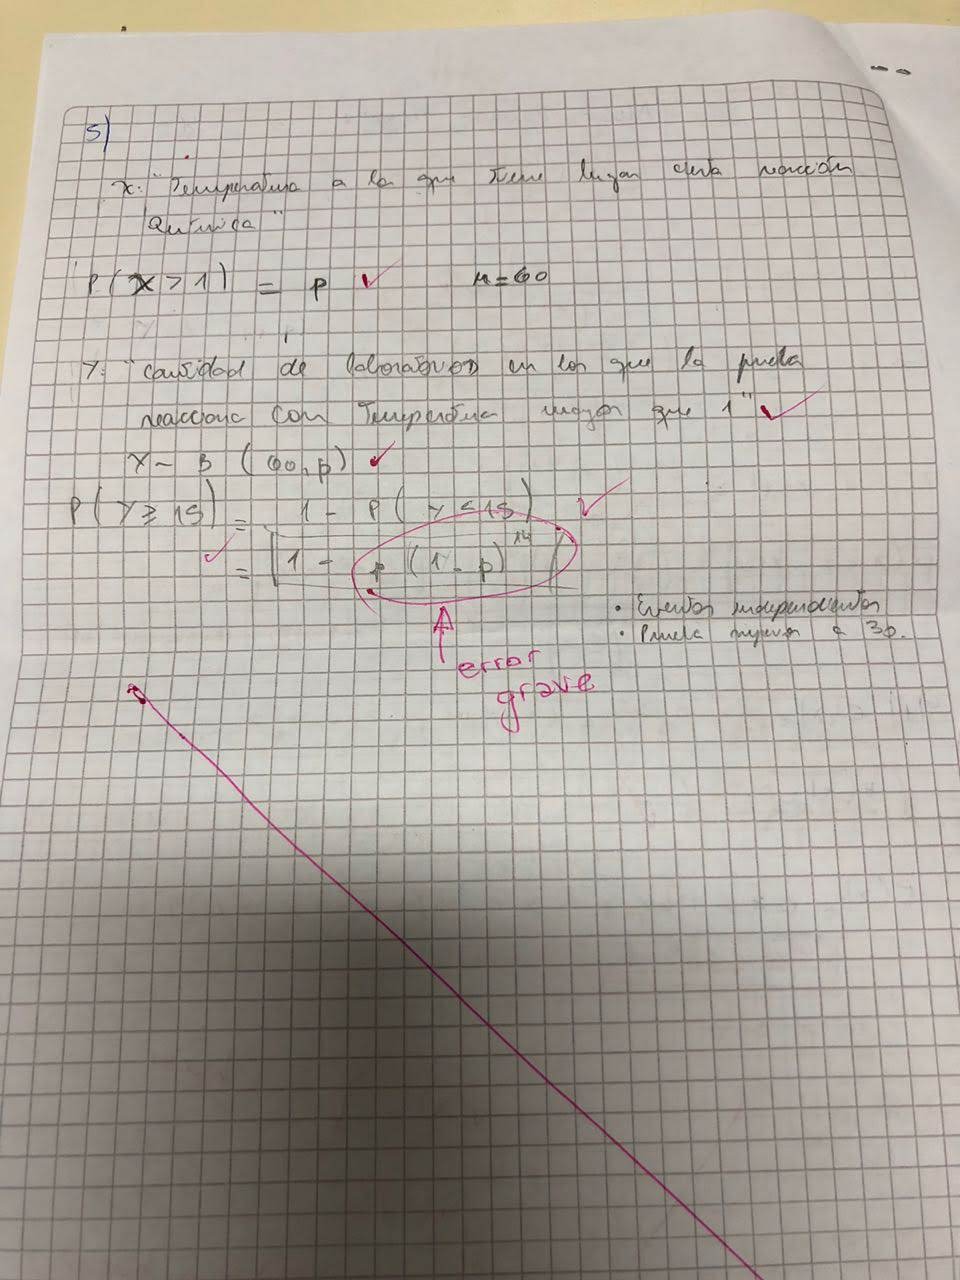 5)
X: "Temperatura a la que tiene lugar cierta reacción
Química"
P(X > 1) = p ✓ n = 60
Y: "cantidad de laboratorios en los que la prueba
reacciona con Temperatura mayor que 1" ✓
Y ~ B (60, p) ✓
P(Y ≥ 15) = 1 - P(Y < 15) ✓
✓ = 1 - p (1 - p)^14
• Eventos independientes
• mayor a 30.
error
grave